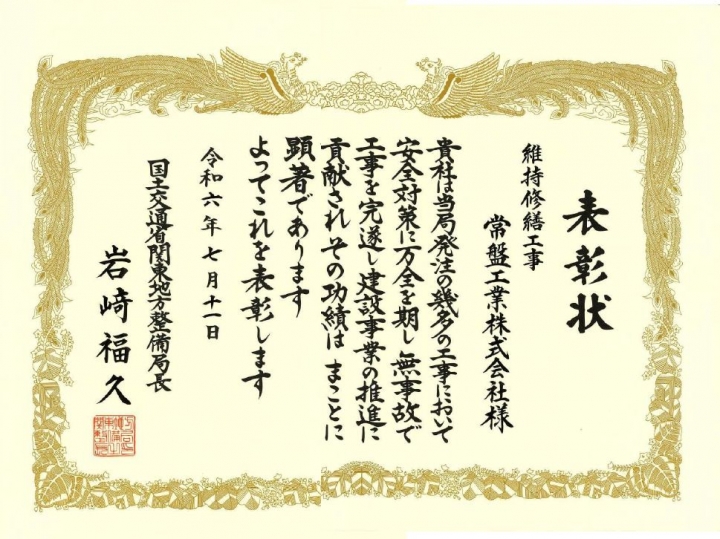 表彰状
常盤工業株式会社様
維持修繕工事
貴社は当局発注の幾多の工事において
安全対策に万全を期し無事故で
工事を完遂し建設事業の推進に
貢献されその功績はまことに
顕著であります
よってこれを表彰します
令和六年七月十一日
国土交通省関東地方整備局長
岩﨑福久